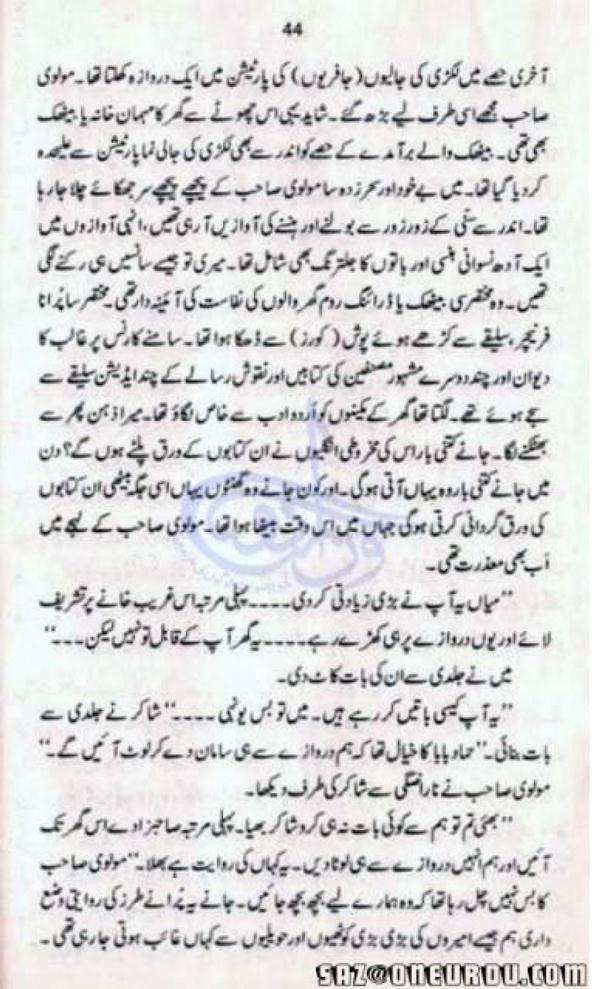 44
آخری حصے میں لکڑی کی جالیوں (جافریوں) کی پارٹیشن میں ایک دروازہ کھلتا تھا۔ مولوی
صاحب مجھے اسی طرف لیے بڑھ گئے۔ شاید یہی اس چھوٹے سے گھر کا مہمان خانہ یا بیٹھک
بھی تھی۔ بیٹھک والے برآمدے کے حصے کو اندر سے بھی لکڑی کی جالی نما پارٹیشن سے علیحدہ
کر دیا گیا تھا۔ میں بے خود اور سحر زدہ سا مولوی صاحب کے پیچھے پیچھے سر جھکائے چلا جا رہا
تھا۔ اندر سے سُنّی کے زور زور سے بولنے اور ہنسنے کی آوازیں آ رہی تھیں، انہی آوازوں میں
ایک آدھ نسوانی ہنسی اور باتوں کا جلترنگ بھی شامل تھا۔ میری تو جیسے سانسیں ہی رکنے لگی
تھیں۔ وہ مختصر سی بیٹھک یا ڈرائنگ روم گھر والوں کی نفاست کی آئینہ دار تھی۔ مختصر سا پُرانا
فرنیچر، سلیقے سے کڑھے ہوئے پوش (کورز) سے ڈھکا ہوا تھا۔ سامنے کارنس پر غالب کا
دیوان اور چند دوسرے مشہور مصنفین کی کتابیں اور نقوش رسالے کے چند ایڈیشن سلیقے سے
سجے ہوئے تھے۔ لگتا تھا گھر کے مکینوں کو اُردو ادب سے خاص لگاؤ تھا۔ میرا ذہن پھر سے
بھٹکنے لگا۔ جانے کتنی بار اس کی مخروطی انگلیوں نے ان کتابوں کے ورق پلٹے ہوں گے؟ دن
میں جانے کتنی بار وہ یہاں آتی ہوگی۔ اور کون جانے وہ گھنٹوں یہاں اسی جگہ بیٹھی ان کتابوں
کی ورق گردانی کرتی ہوگی جہاں میں اس وقت بیٹھا ہوا تھا۔ مولوی صاحب کے لہجے میں
اَب بھی معذرت تھی۔
"میاں یہ آپ نے بڑی زیادتی کر دی۔۔۔۔ پہلی مرتبہ اس غریب خانے پر تشریف
لائے اور یوں دروازے پر ہی کھڑے رہے۔۔۔۔ یہ گھر آپ کے قابل تو نہیں لیکن۔۔۔"
میں نے جلدی سے ان کی بات کاٹ دی۔
"یہ آپ کیسی باتیں کر رہے ہیں۔ میں تو بس یونہی۔۔۔۔" شاکر نے جلدی سے
بات بنائی۔ "حماد بابا کا خیال تھا کہ ہم دروازے سے ہی سامان دے کر لوٹ آئیں گے۔"
مولوی صاحب نے ناراضگی سے شاکر کی طرف دیکھا۔
"بھئی تم تو ہم سے کوئی بات نہ ہی کرو شاکر بھیا۔ پہلی مرتبہ صاحبزادے اس گھر تک
آئیں اور ہم انہیں دروازے سے ہی لوٹا دیں۔ یہ کہاں کی روایت ہے بھلا۔" مولوی صاحب
کا بس نہیں چل رہا تھا کہ وہ ہمارے لیے بچھ بچھ جائیں۔ جانے یہ پُرانے طرز کی روایتی وضع
داری ہم جیسے امیروں کی بڑی بڑی کوٹھیوں اور حویلیوں سے کہاں غائب ہوتی جا رہی تھی۔
SAZ@ONEURDU.COM